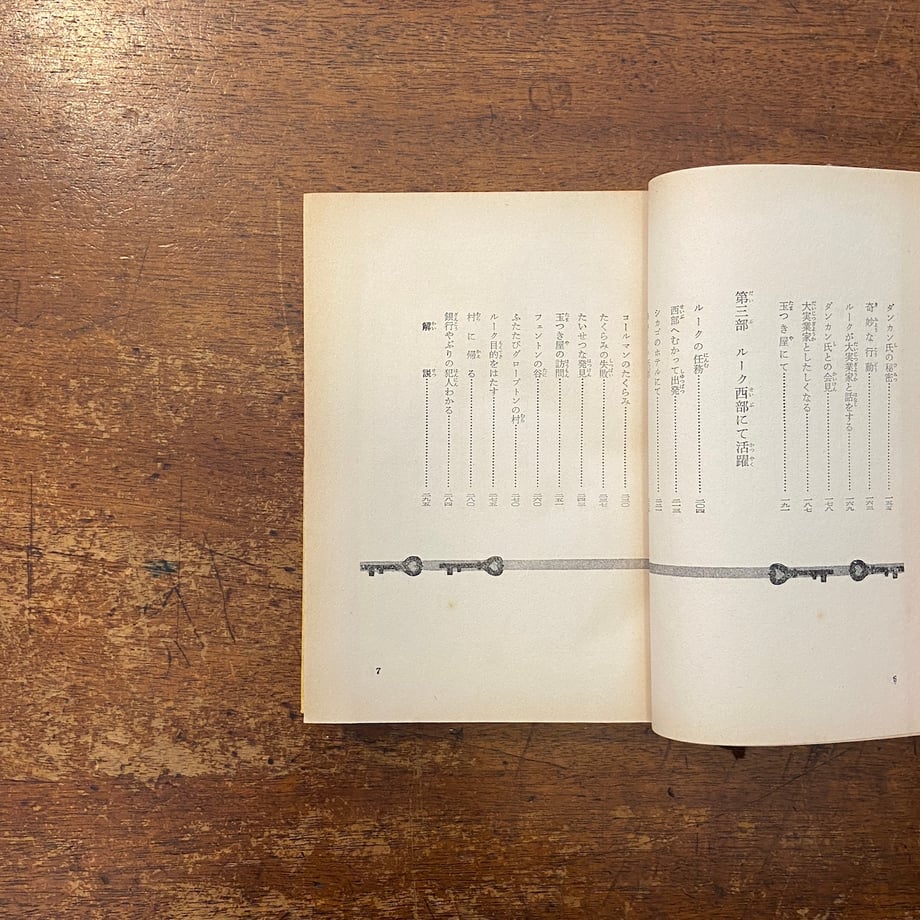 ダンカン氏の秘密……………一五五
奇妙な行動……………一六三
ルークが大実業家と話をする……………一六九
ダンカン氏との会見……………一七八
大実業家としたしくなる……………一八七
玉つき屋にて……………一九一
第三部 ルーク西部にて活躍
ルークの任務……………二〇四
西部へむかって出発……………二一三
シカゴのホテルにて……………二二一
コールマンのたくらみ……………二三〇
たくらみの失敗……………二三七
たいせつな発見……………二四三
玉つき屋の訪問……………二五一
フェントンの谷……………二六〇
ふたたびグローブトンの村……………二七〇
ルーク目的をはたす……………二七五
村に帰る……………二八〇
銀行やぶりの犯人わかる……………二八四
解説……………二九五
7